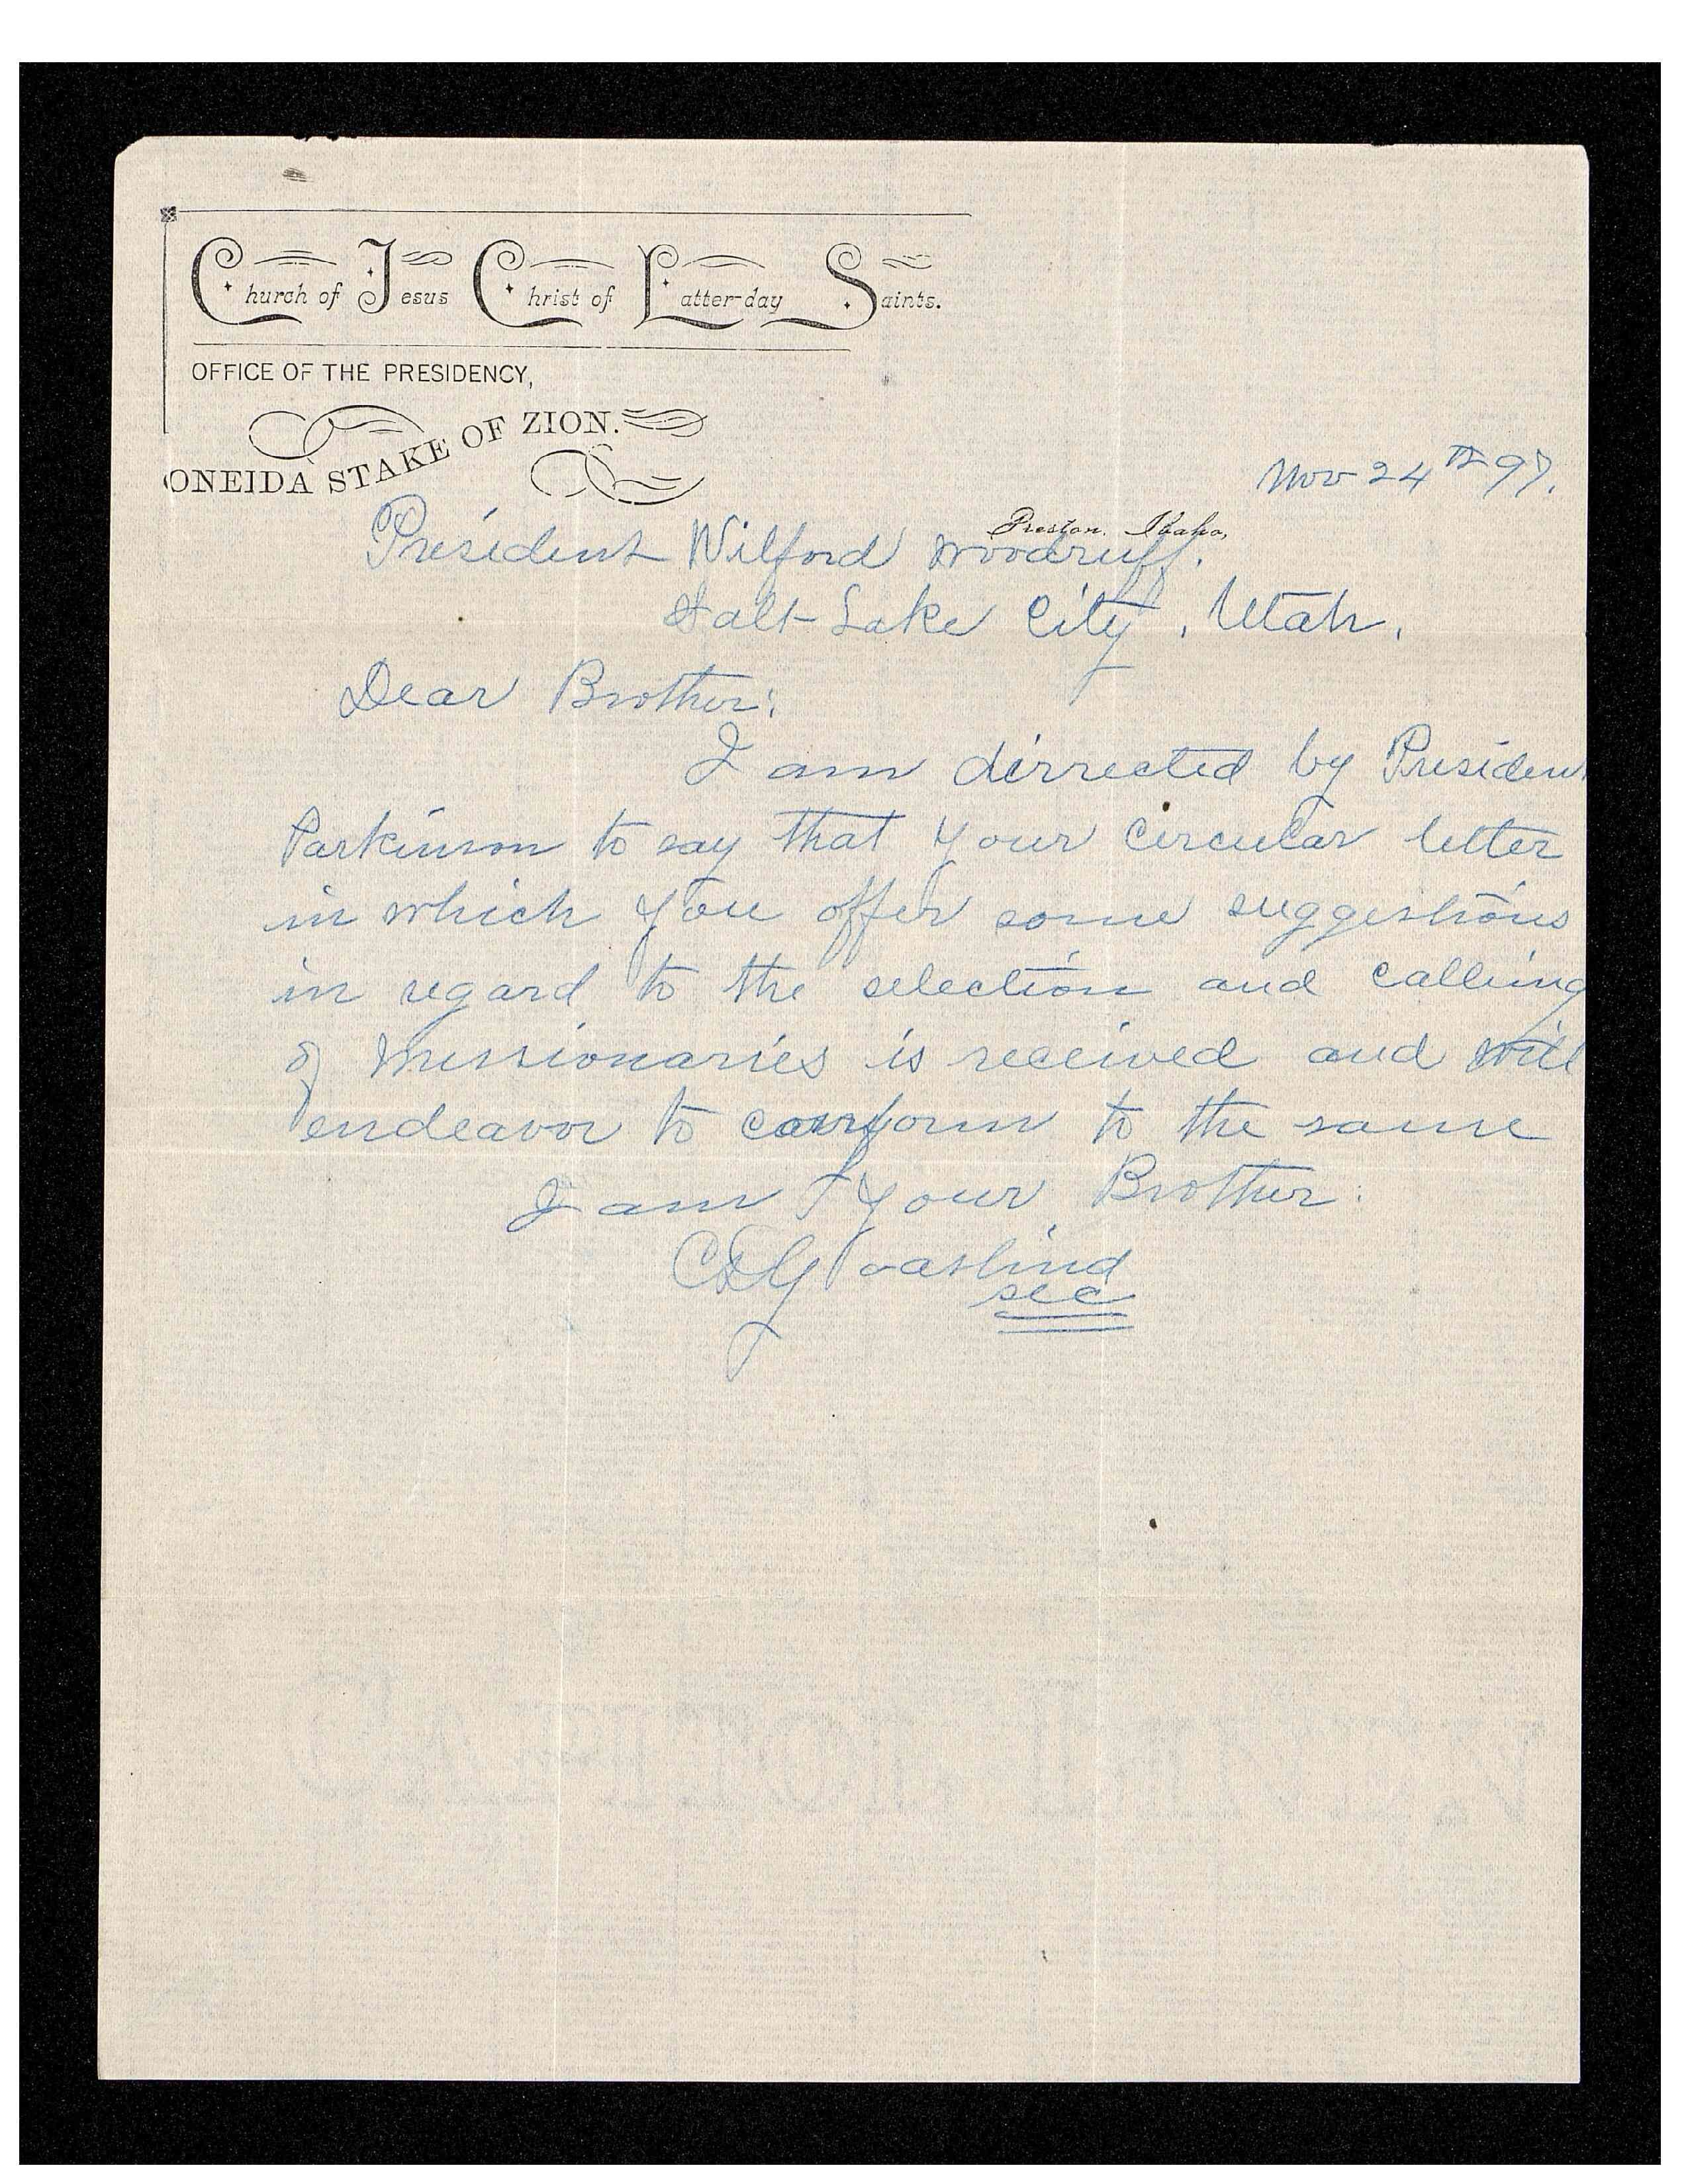 Church of Jesus Christ of Latter-day Saints.
OFFICE OF THE PRESIDENCY,
ONEIDA STAKE OF ZION.
Nov 24th 97.
Preston, Idaho,
President Wilford Woodruff.
Salt Lake City, Utah,
Dear Brother:
I am dirrected by Presiden
Parkinson to say that your circular letter
in which you offer some suggestions
in regard to the selection and calling
of Missionaries is received and will
endeavor to conform to the same
I am your Brother:
sec